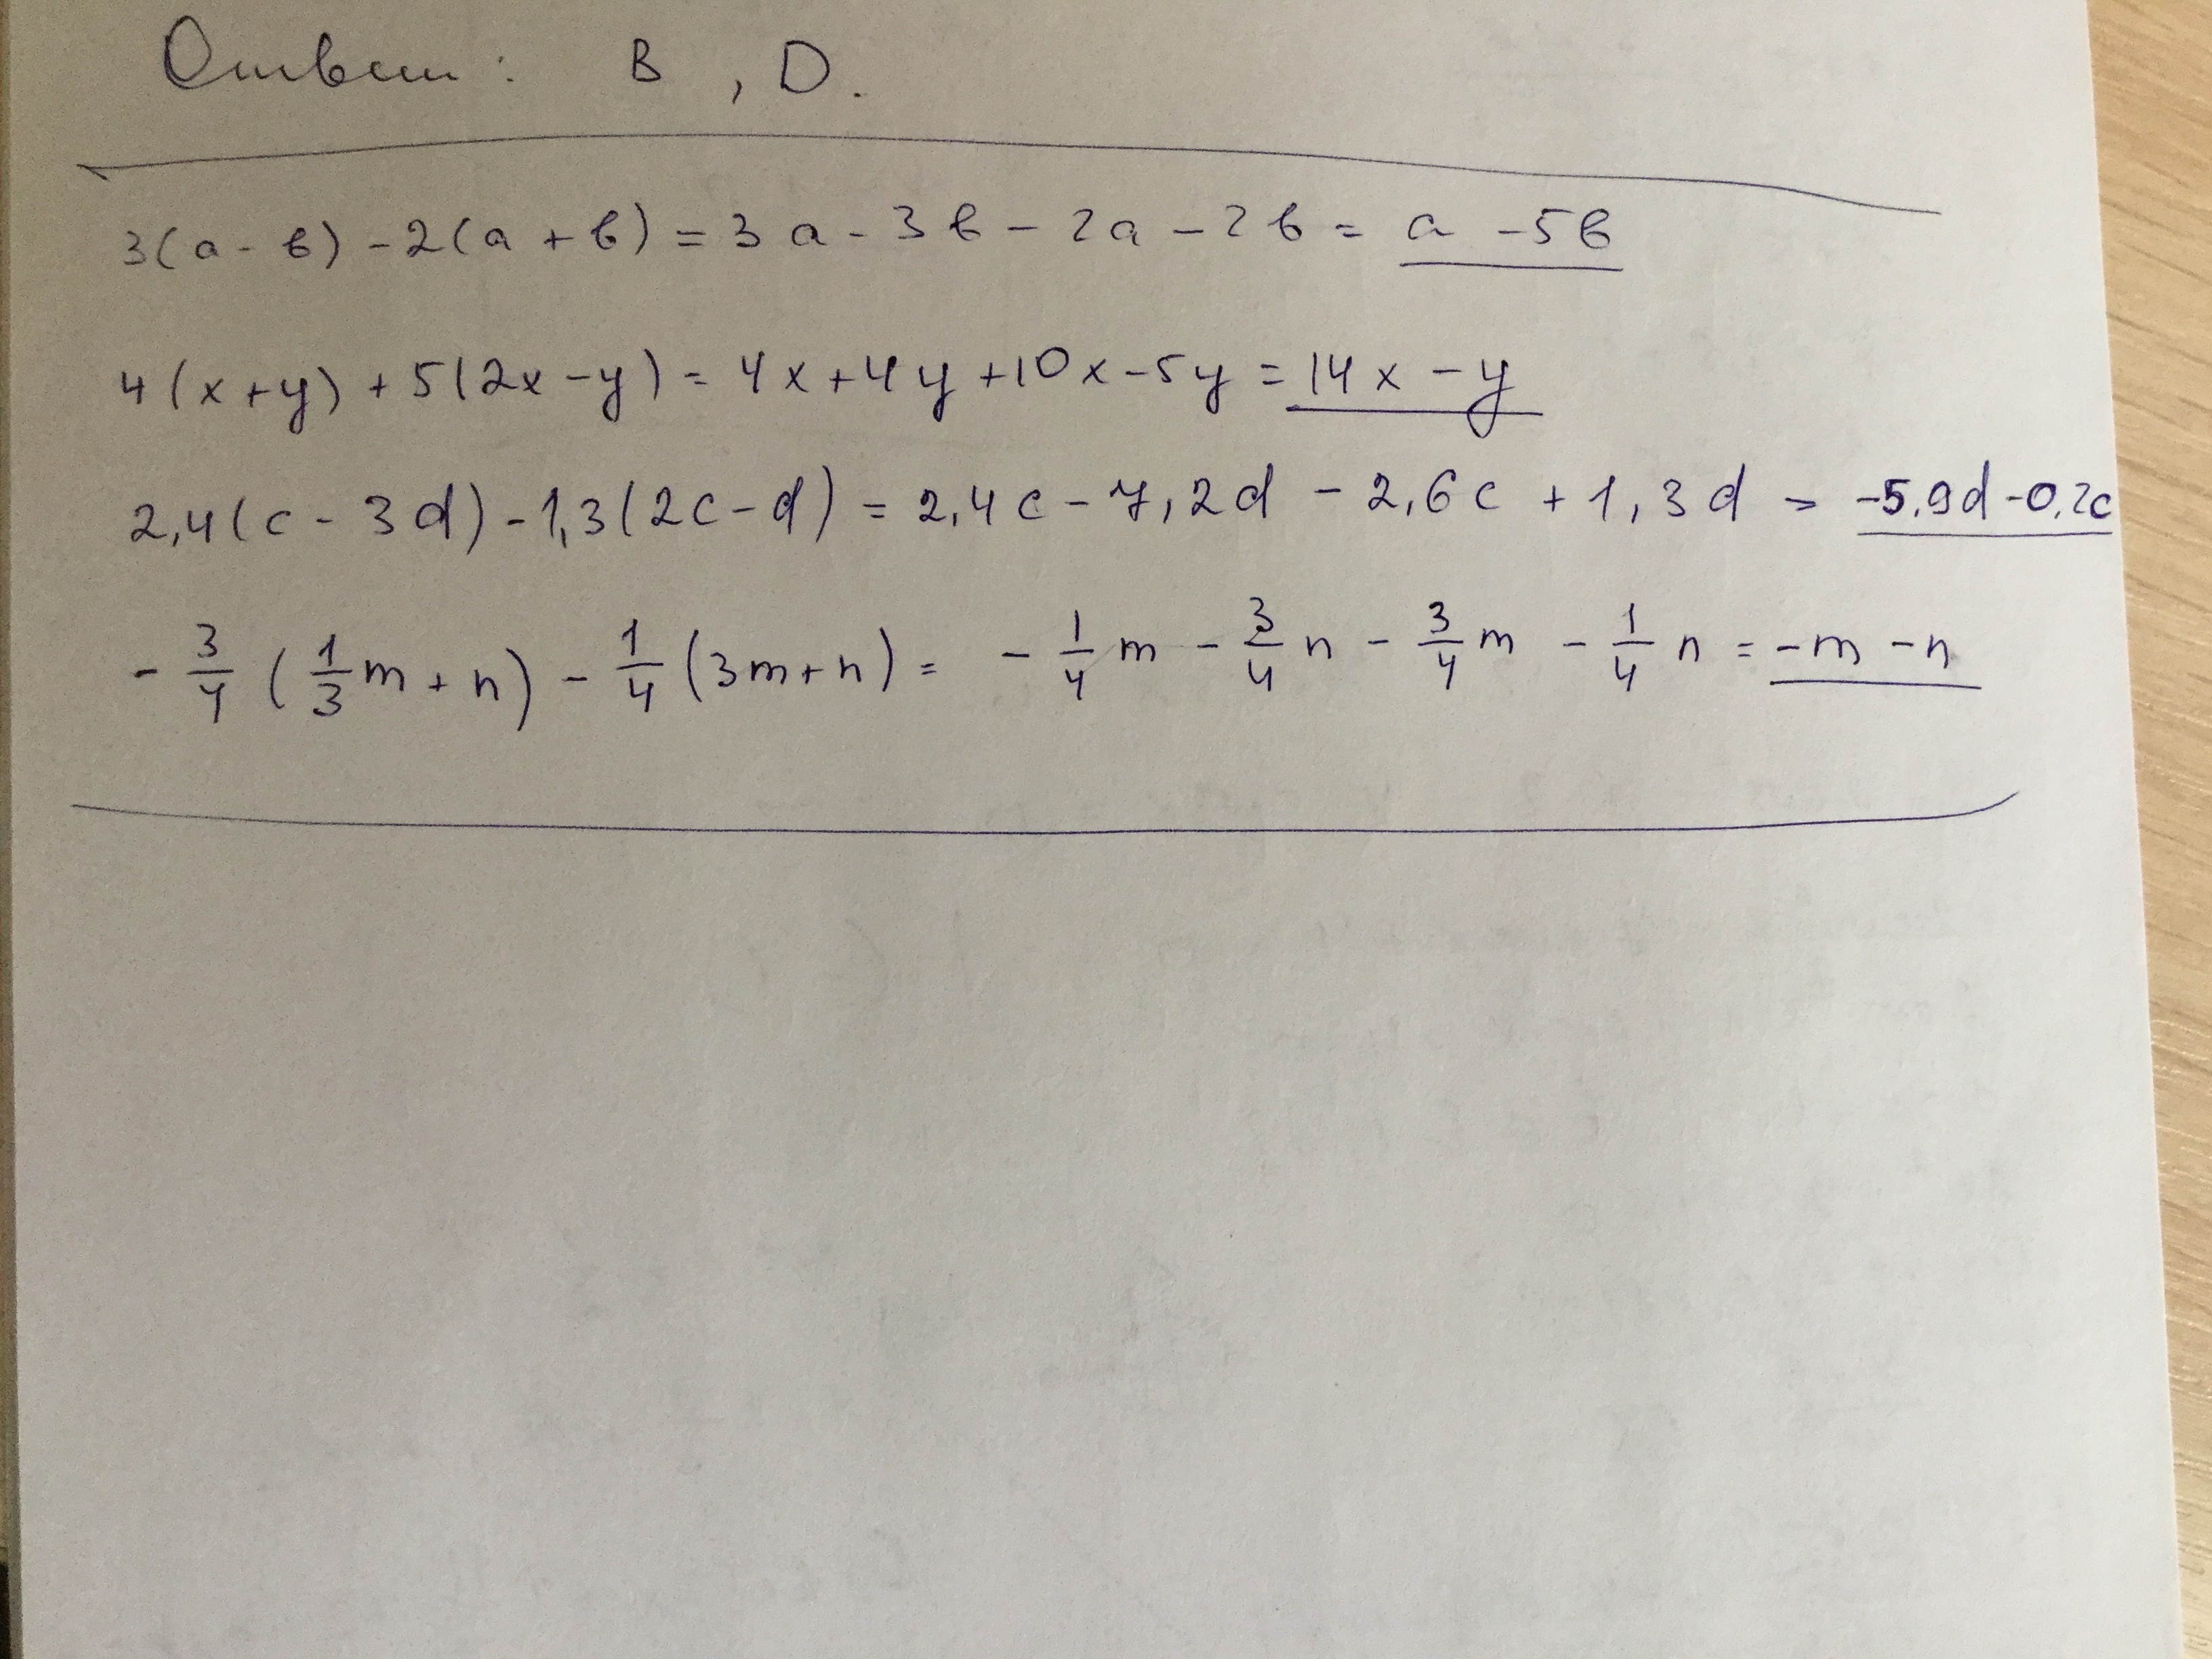 Ответ: В, D.
3(a - в) - 2(a + в) = 3a - 3в - 2a - 2в = a - 5в
4(x+y) + 5(2x-y) = 4x+4y+10x-5y = 14x - y
2,4(c - 3d) - 1,3(2c-d) = 2,4c - 7,2d - 2,6c + 1,3d = -5,9d - 0,2c
- 3/4 (1/3 m + n) - 1/4 (3m + n) = - 1/4 m - 3/4 n - 3/4 m - 1/4 n = -m - n